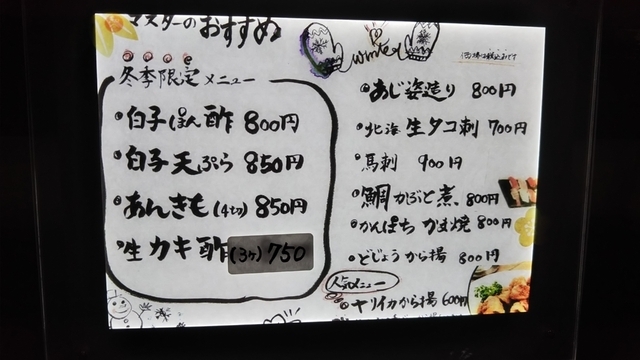 マスターのおすすめ
冬季限定メニュー
白子ぽん酢 800円
白子天ぷら 850円
あんきも(4切) 850円
生カキ酢(3ケ) 750
winter
あじ姿造り 800円
北海生タコ刺 700円
馬刺 900円
鯛かぶと煮 800円
かんぱちかま焼 800円
どじょうから揚 800円
人気メニュー
ヤリイカから揚 600円